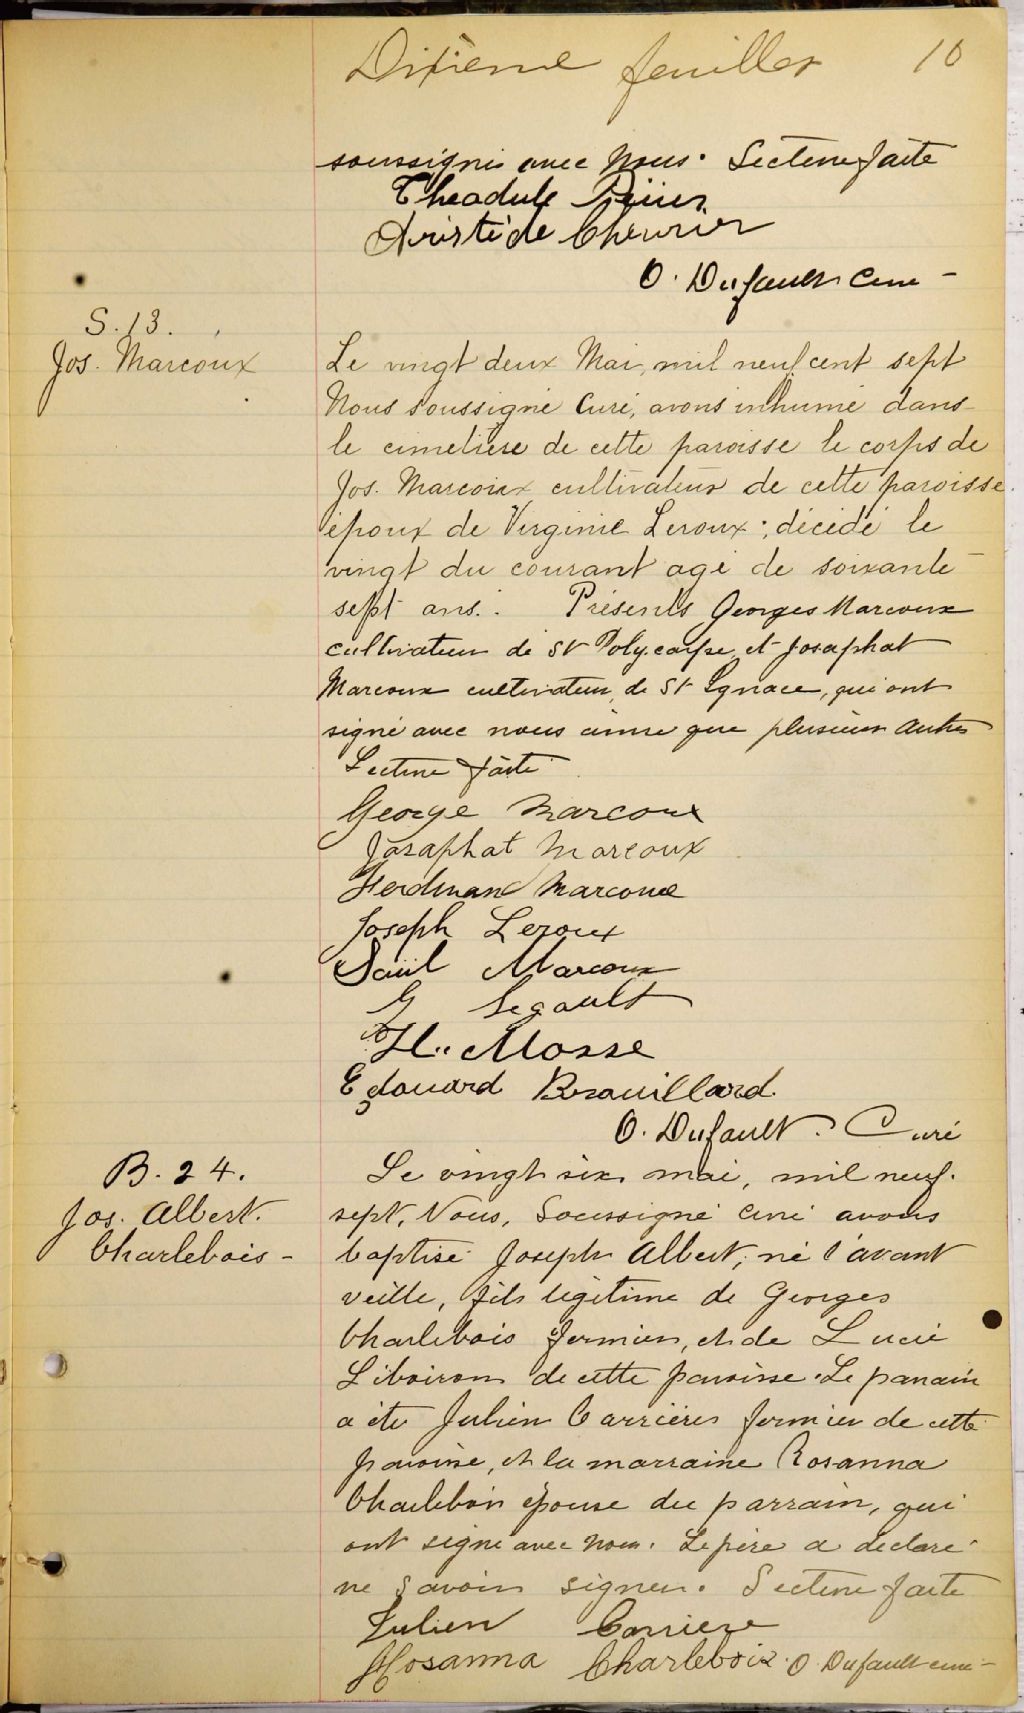 Dixième feuillet 10
soussignés avec Nous. Lecture faite
Théodule
Aristide Chevrier
O. Dufault Curé
S. 13.
Jos. Marcoux
Le vingt deux Mai, mil neuf cent sept
Nous soussigné Curé, avons inhumé dans
le cimetière de cette paroisse le corps de
Jos. Marcoux cultivateur de cette paroisse
époux de Virginie Leroux ; décédé le
vingt du courant agé de soixante
sept ans. Présents Georges Marcoux
cultivateur de St Polycarpe, et Josaphat
Marcoux cultivateur, de St Ignace, qui ont
signé avec nous ainsi que plusieurs autres
Lecture faite
George Marcoux
Josaphat Marcoux
Ferdinand Marcoux
Joseph Leroux
Saül Marcoux
G Legault
H. Mosse
Edouard Brouillard
O. Dufault. Curé
B. 24.
Jos. Albert.
Charlebois -
Le vingt six mai, mil neuf.
sept, Nous, Soussigné Curé avons
baptisé Joseph Albert, né l'avant
veille, fils légitime de Georges
Charlebois fermier, et de Lucie
Liboiron de cette paroisse. Le parrain
a été Julien Carrières fermier de cette
paroisse, et la marraine Rosanna
Charlebois épouse du parrain, qui
ont signé avec nous. Le père a déclaré
ne savoir signer. Lecture faite
Julien Carriere
Rosanna Charlebois. O Dufault curé -